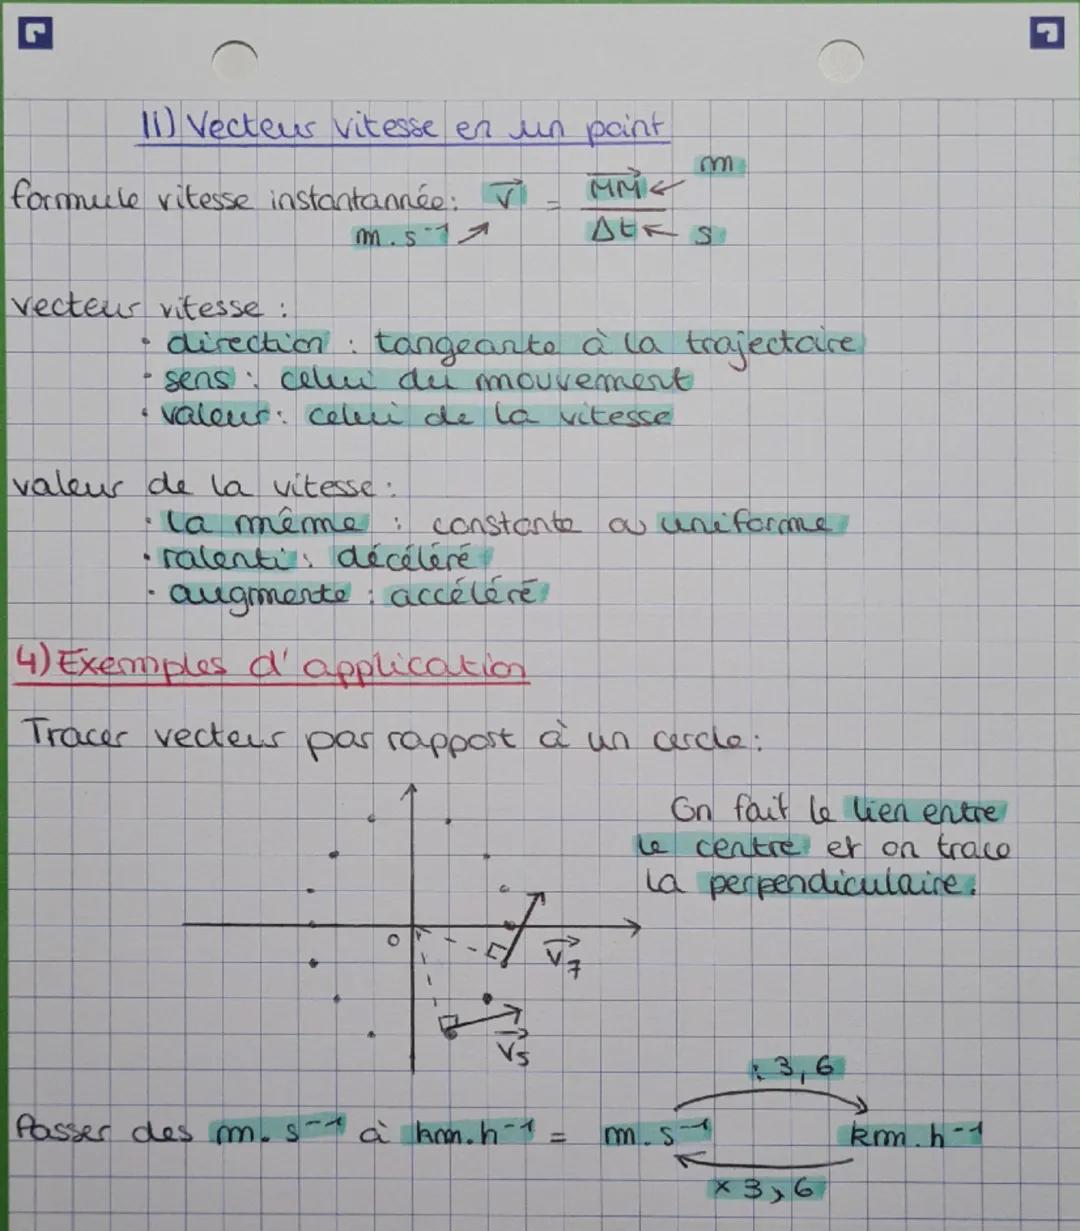 II) Vecteur vitesse en un point
m
formule vitesse instantannée: V = MM'
m.s⁻¹ Δt s
vecteur vitesse :
• direction : tangeante à la trajectoire
• sens : celui du mouvement
• valeur : celui de la vitesse
valeur de la vitesse :
• la même : constante ou uniforme
• ralenti : décéléré
• augmente : accéléré
4) Exemples d'application
Tracer vecteur par rapport à un cercle :
On fait le lien entre
le centre et on trace
la perpendiculaire.
O
V₇
V₅
: 3,6
Passer des m.s⁻¹ à km.h⁻¹ = m.s⁻¹ km.h⁻¹
× 3,6